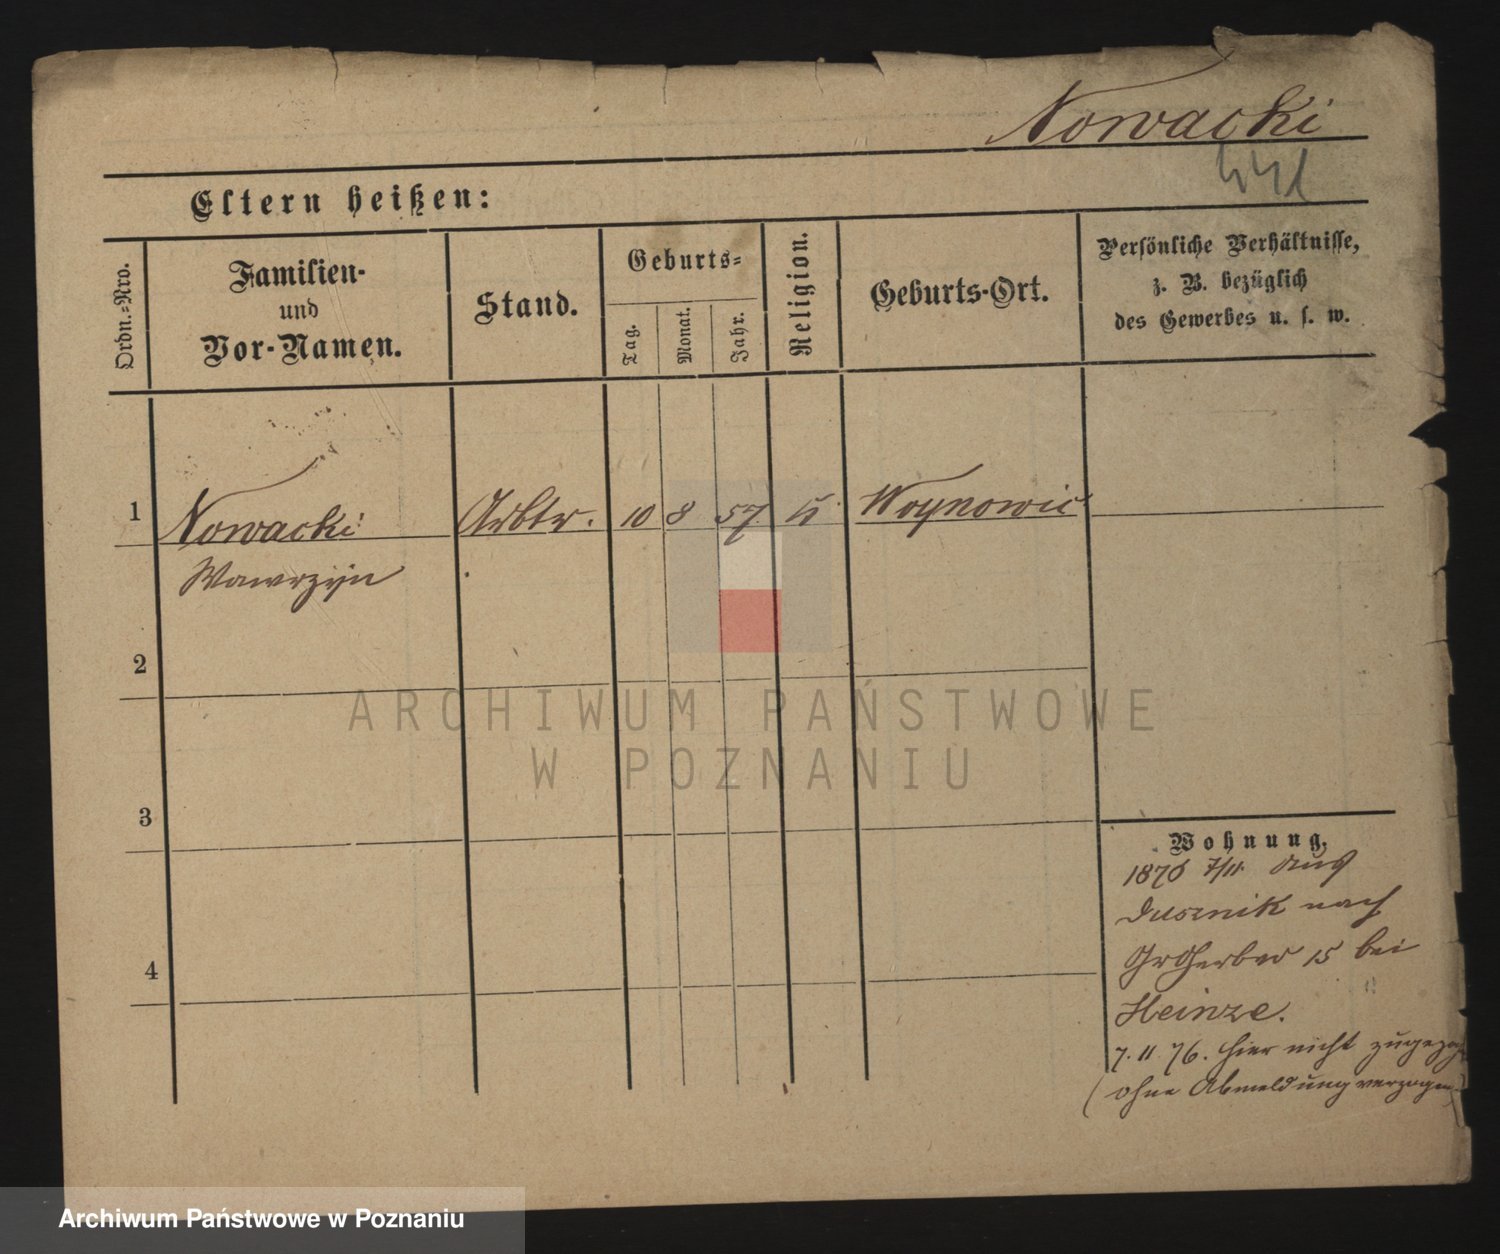 Nowacki
Eltern heißen:
Ordn.-Nro.
Familien-
und
Vor-Namen.
Stand.
Geburts-
Tag.
Monat.
Jahr.
Religion.
Geburts-Ort.
Persönliche Verhältnisse,
z. B. bezüglich
des Gewerbes u. s. w.
1 Nowacki Arbtr. 10 8 57 Woynowic
Wawrzyn
2
3
4
Wohnung.
1876 7/11. aus
Dusznik nach
GrGerber 15 bei
Heinze.
7. 11. 76. hier nicht zugezog
(ohne Abmeldung verzogen)
ARCHIWUM PAŃSTWOWE
W POZNANIU
Archiwum Państwowe w Poznaniu